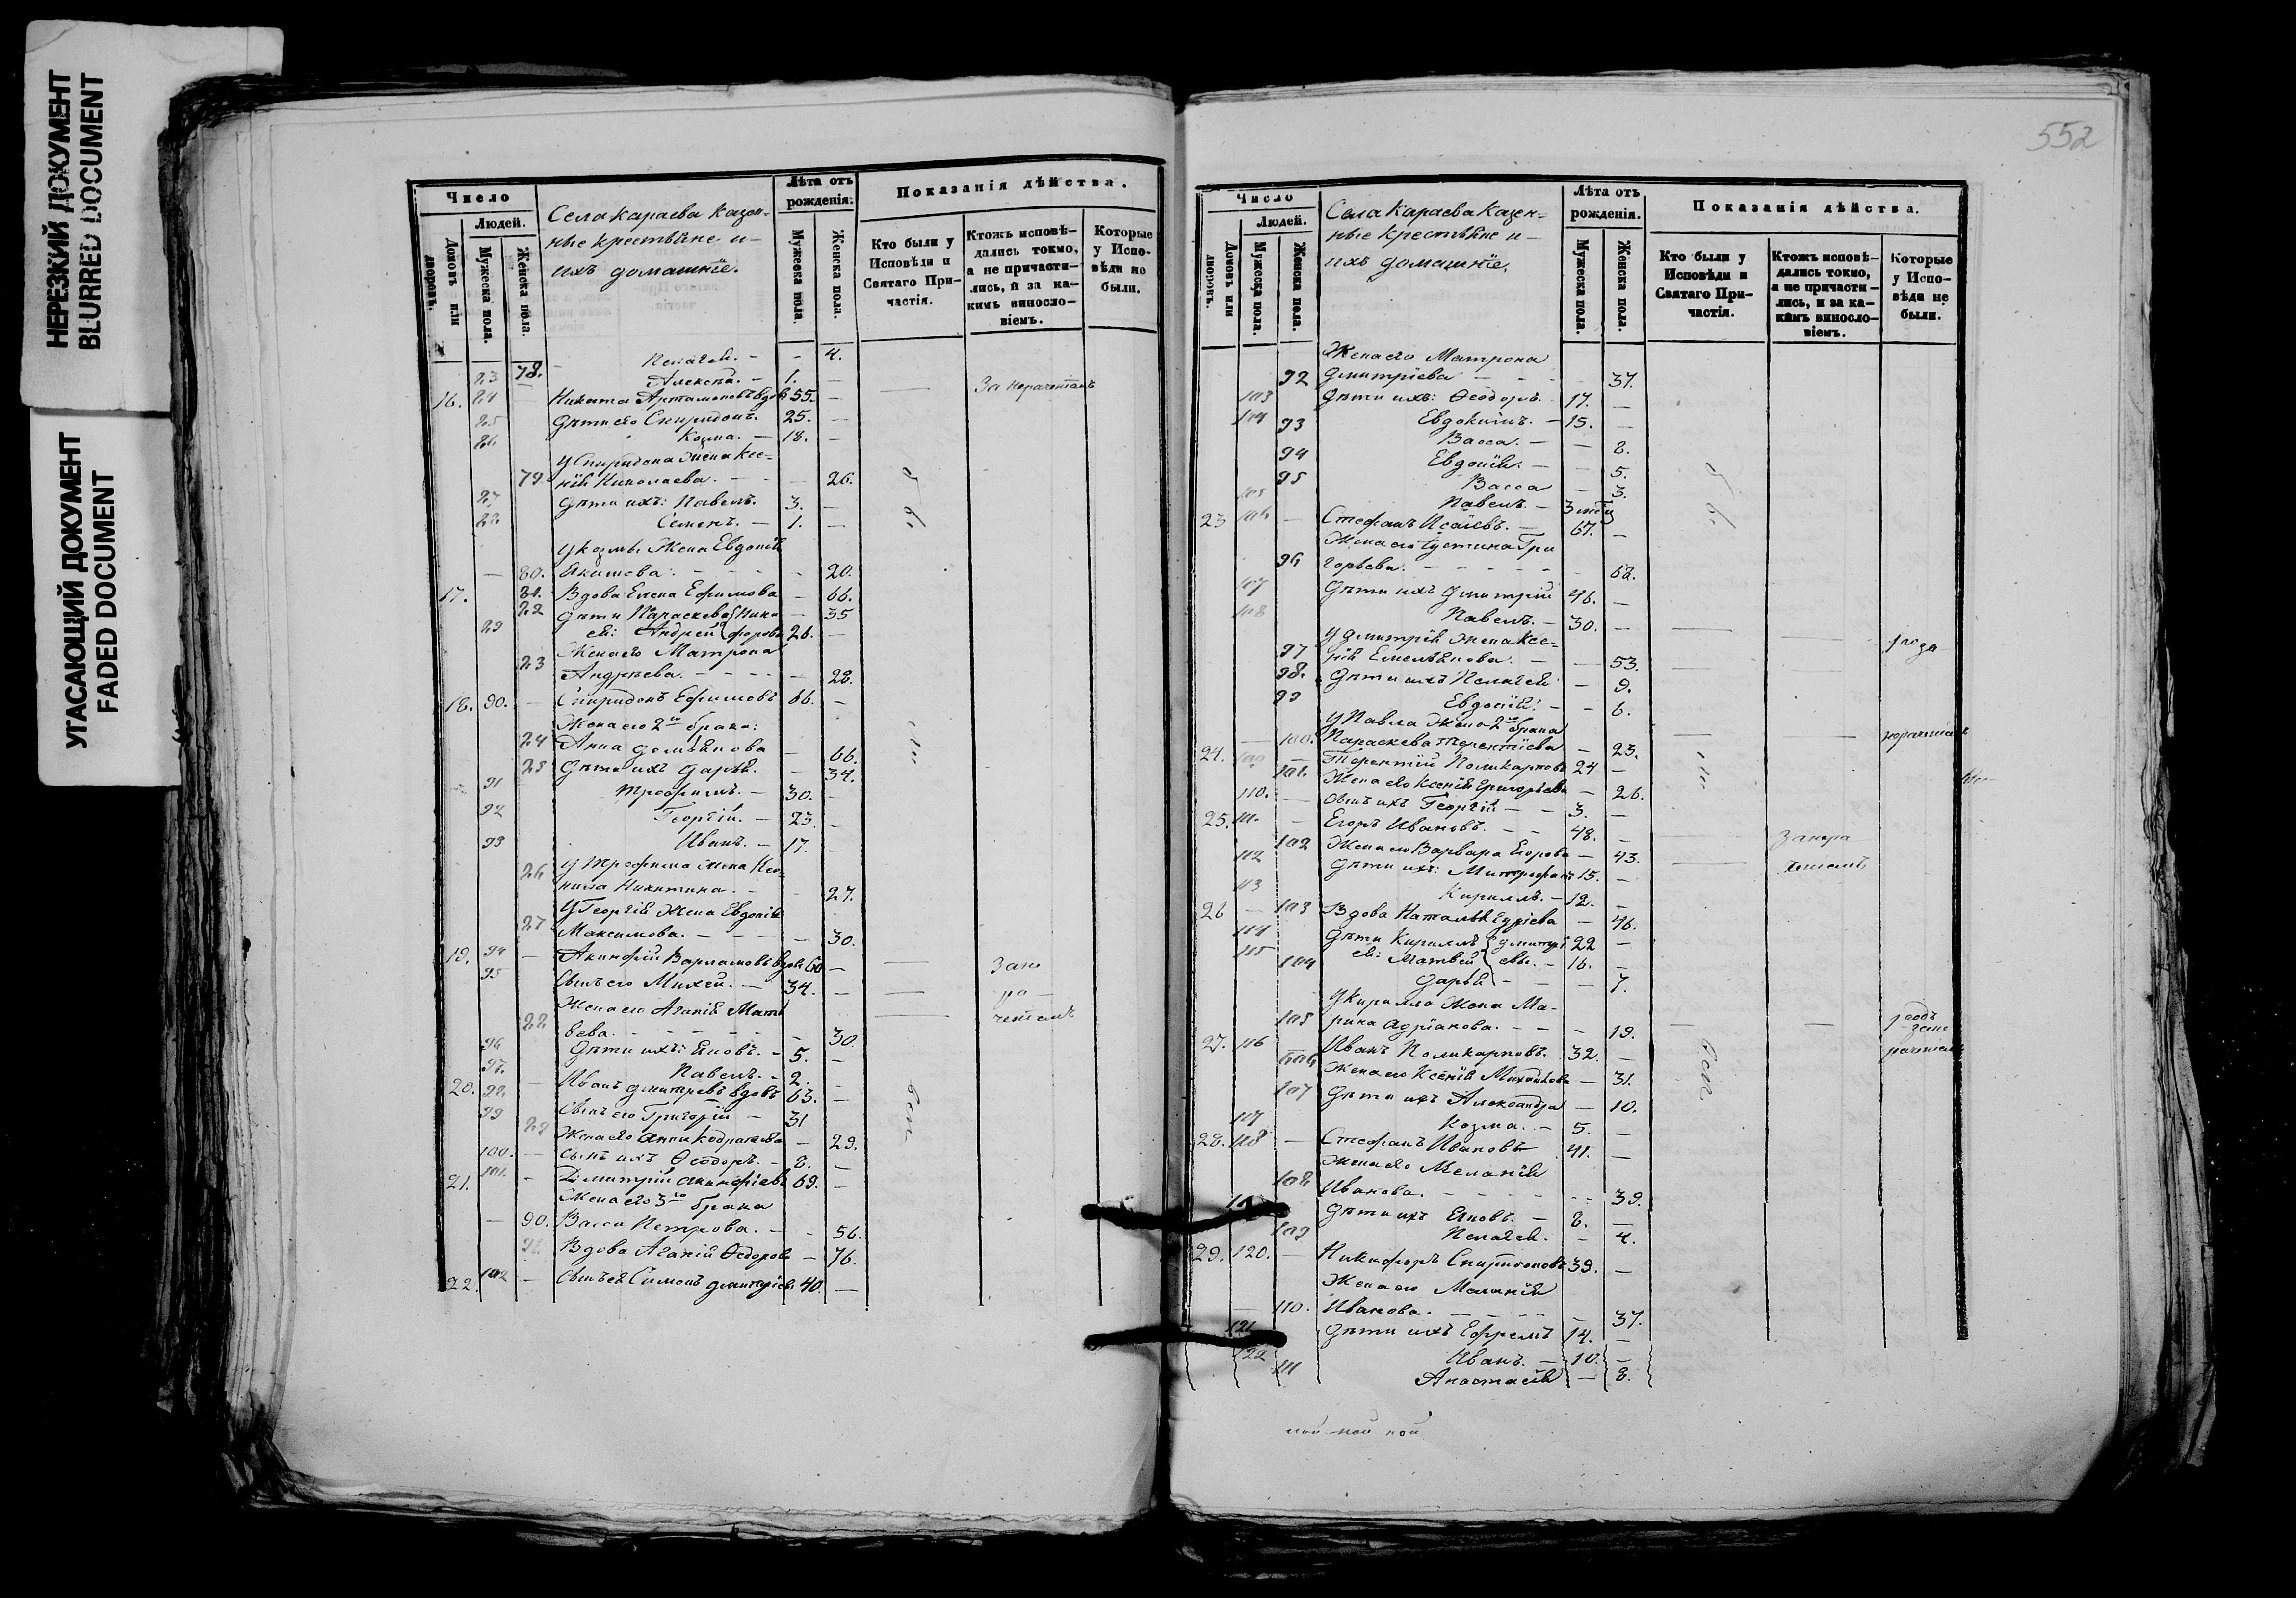 НЕРЕЗКИЙ ДОКУМЕНТ
BLURRED DOCUMENT
УГАСАЮЩИЙ ДОКУМЕНТ
FADED DOCUMENT
Число
Людей.
Домовъ или дворовъ.
Мужеска пола.
Женска пола.
Села Караева казен-
ные крестьяне и
ихъ домашніе.
Лѣта отъ рожденія.
Мужеска пола.
Женска пола.
Показанія дѣйства.
Кто были у Исповѣди и Святаго Причастія.
Ктожъ исповѣ-
дались токмо,
а не причасти-
лись, и за ка-
кимъ виносло-
віемъ.
Которые
у Испо-
вѣди не
были.
78. Пелагея. - - 4.
83 Алексѣй. - 1. -
16. 84 - Никита Артамоновъ вдов 55. - За нерачениемъ
85 Дѣти его Спиридонъ. 25. -
86 Козма. - 18. -
У Спиридона жена Ксе-
79 нія Николаева. - - 26.
87 Дѣти ихъ: Павелъ. 3. -
88 Семенъ. - 1. -
У Козмы жена Евдокія
- 80. Акимова. - - - 20.
17. 81. Вдова Елена Ефимова - 66.
82 Дѣти Параскева Ники - 35
89 ея: Андрей форовы 26. -
Жена его Матрона
83 Андреева. - - - 28.
18. 90. - Спиридонъ Ефимовъ 66. -
Жена его 2го брака:
84 Анна Демьянова - 66.
85 Дѣти ихъ Дарья. - 34.
91 Трофимъ. - 30. -
92 Георгій. - 23. -
93 Иванъ. - 17. -
86 У Трофима жена Нео-
нила Никитина. - - 27.
У Георгія жена Евдокія
87 Максимова. - - - 30.
19. 94 - Акинфій Варламовъ вдов 60 -
95 Сынъ его Михей. - 34. -
Жена его Агапія Матв
88 ѣева. - - - - 30.
96 Дѣти ихъ: Яковъ. - 5. -
97. Павелъ. - 2. -
20. 98. - Иванъ Дмитревъ вдовъ 63. -
99 Сынъ его Григорій - 31
89 Жена его Анна Кодратова - 29.
100. - Сынъ ихъ Ѳеодоръ. - 8. -
21. 101. - Димитрій Акинфіевъ 69. -
Жена его 3го брака
- 90. Васса Петрова. - - 56.
91. Вдова Агапія Ѳедорова - 76.
22. 102 - Сынъ ея Симонъ Дмитріевъ 40. -
552
Число
Людей.
Домовъ или дворовъ.
Мужеска пола.
Женска пола.
Села Караева казен-
ные крестьяне и
ихъ домашніе.
Лѣта отъ рожденія.
Мужеска пола.
Женска пола.
Показанія дѣйства.
Кто были у Исповѣди и Святаго Причастія.
Ктожъ исповѣ-
дались токмо,
а не причасти-
лись, и за ка-
кимъ виносло-
віемъ.
Которые
у Испо-
вѣди не
были.
Жена его Матрона
92 Дмитріева - - - 37.
103 Дѣти ихъ: Ѳеодоръ. 17. -
104 Евдокимъ. - 15. -
93 Васса. - - 8.
94 Евдокія. - - 5.
95 Васса - 3.
105 Павелъ. -
23 106 - Стефанъ Исаіевъ. - 67. -
Жена его Іустина Гри
96 горьева. - - - 62.
107 Дѣти ихъ Дмитрій 46. -
108 Павелъ. - 30. -
У Дмитрія жена Ксе-
97 нія Емельянова. - - 53.
98. Дѣти ихъ Пелагея - 9.
99 Евдокія. - - 6.
У Павла жена 2го брака
- 100. Параскева Терентіева - 23.
24. 109 - Терентій Поликарповъ 24 -
101. Жена его Ксенія Григорьева - 26.
110. - Сынъ ихъ Георгій - - 3. -
25. 111. - Егоръ Ивановъ. - - 48. -
102 Жена его Варвара Егорова - 43.
112 Дѣти ихъ: Митрофанъ 15. -
113 Кириллъ. - 12. -
26 - 103 Вдова Наталья Гуріева - 46.
114 Дѣти Кириллъ Дмитрі 22 -
115 ея: Матвей евы. - 16. -
104 Дарья - - - 7.
У Кирилла жена Ма-
105 рина Адріанова. - - - 19.
27. 116 Иванъ Поликарповъ. 32. -
106 Жена его Ксенія Михайлова - 31.
107 Дѣти ихъ Александра - 10.
117 Козма. - 5. -
28. 118 - Стефанъ Ивановъ 41. -
Жена его Меланія
108 Иванова. - - - - 39.
Дѣти ихъ Яковъ. - 8. -
109 Пелагея. - - 4.
29. 120. - Никифоръ Спиридоновъ 39. -
Жена его Меланія
- 110. Иванова. - - - - 37.
121 Дѣти ихъ Ефремъ 14. -
122 Иванъ. - 10. -
111 Анастасія - 8.